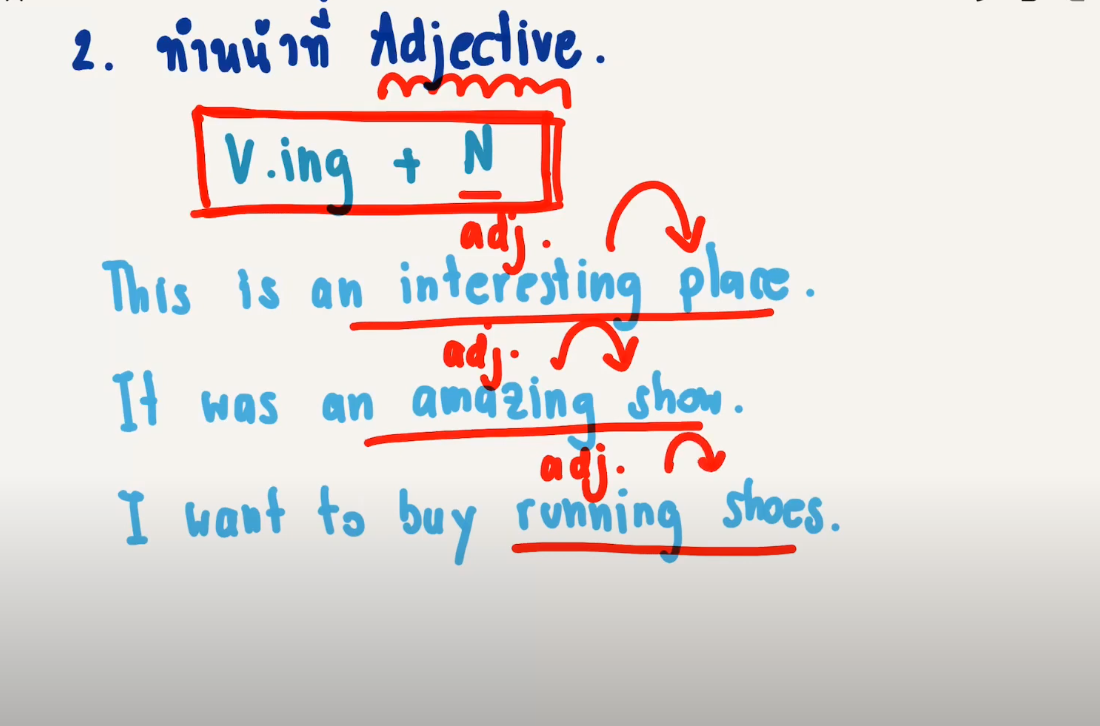 2. ทำหน้าที่ Adjective.
V.ing + N
adj.
This is an interesting place.
adj.
It was an amazing show.
adj.
I want to buy running shoes.